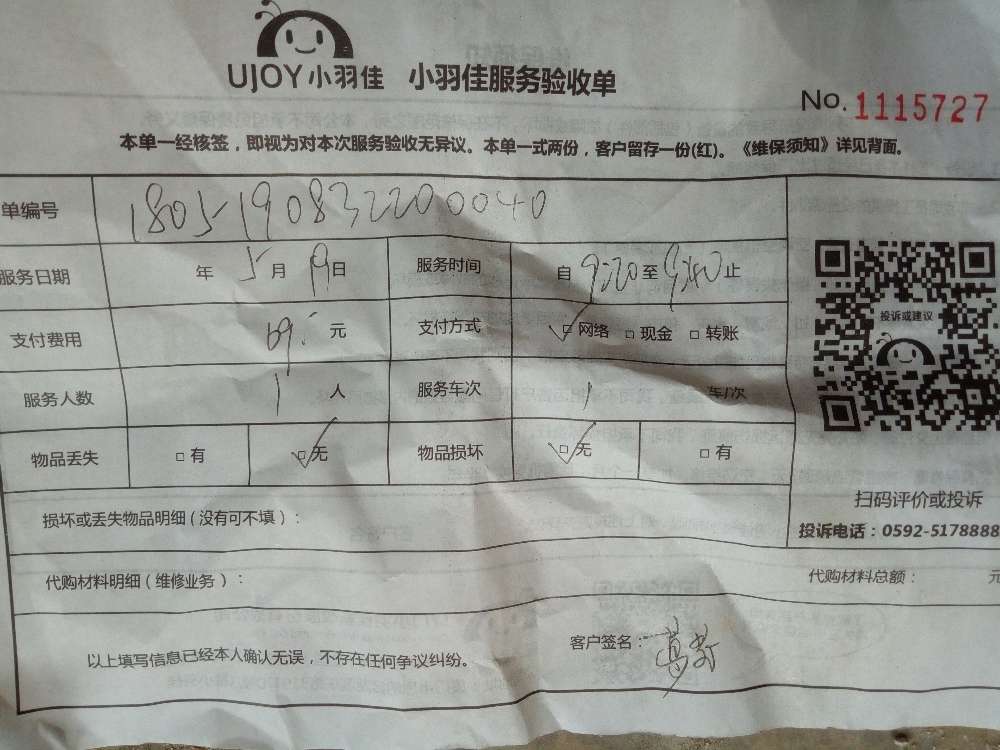 UJOY小羽佳 小羽佳服务验收单
No. 1115727
本单一经核签，即视为对本次服务验收无异议。本单一式两份，客户留存一份(红)。《维保须知》详见背面。
单编号 180519083220040
服务日期 年 5月19日 服务时间 自9:20至9:40止
支付费用 69. 元 支付方式 ☑网络 □现金 □转账
投诉或建议
服务人数 1 人 服务车次 1 车/次
物品丢失 □有 ☑无 物品损坏 ☑无 □有
扫码评价或投诉
损坏或丢失物品明细（没有可不填）：
投诉电话：0592-5178888
代购材料明细（维修业务）： 代购材料总额： 元
以上填写信息已经本人确认无误，不存在任何争议纠纷。 客户签名：